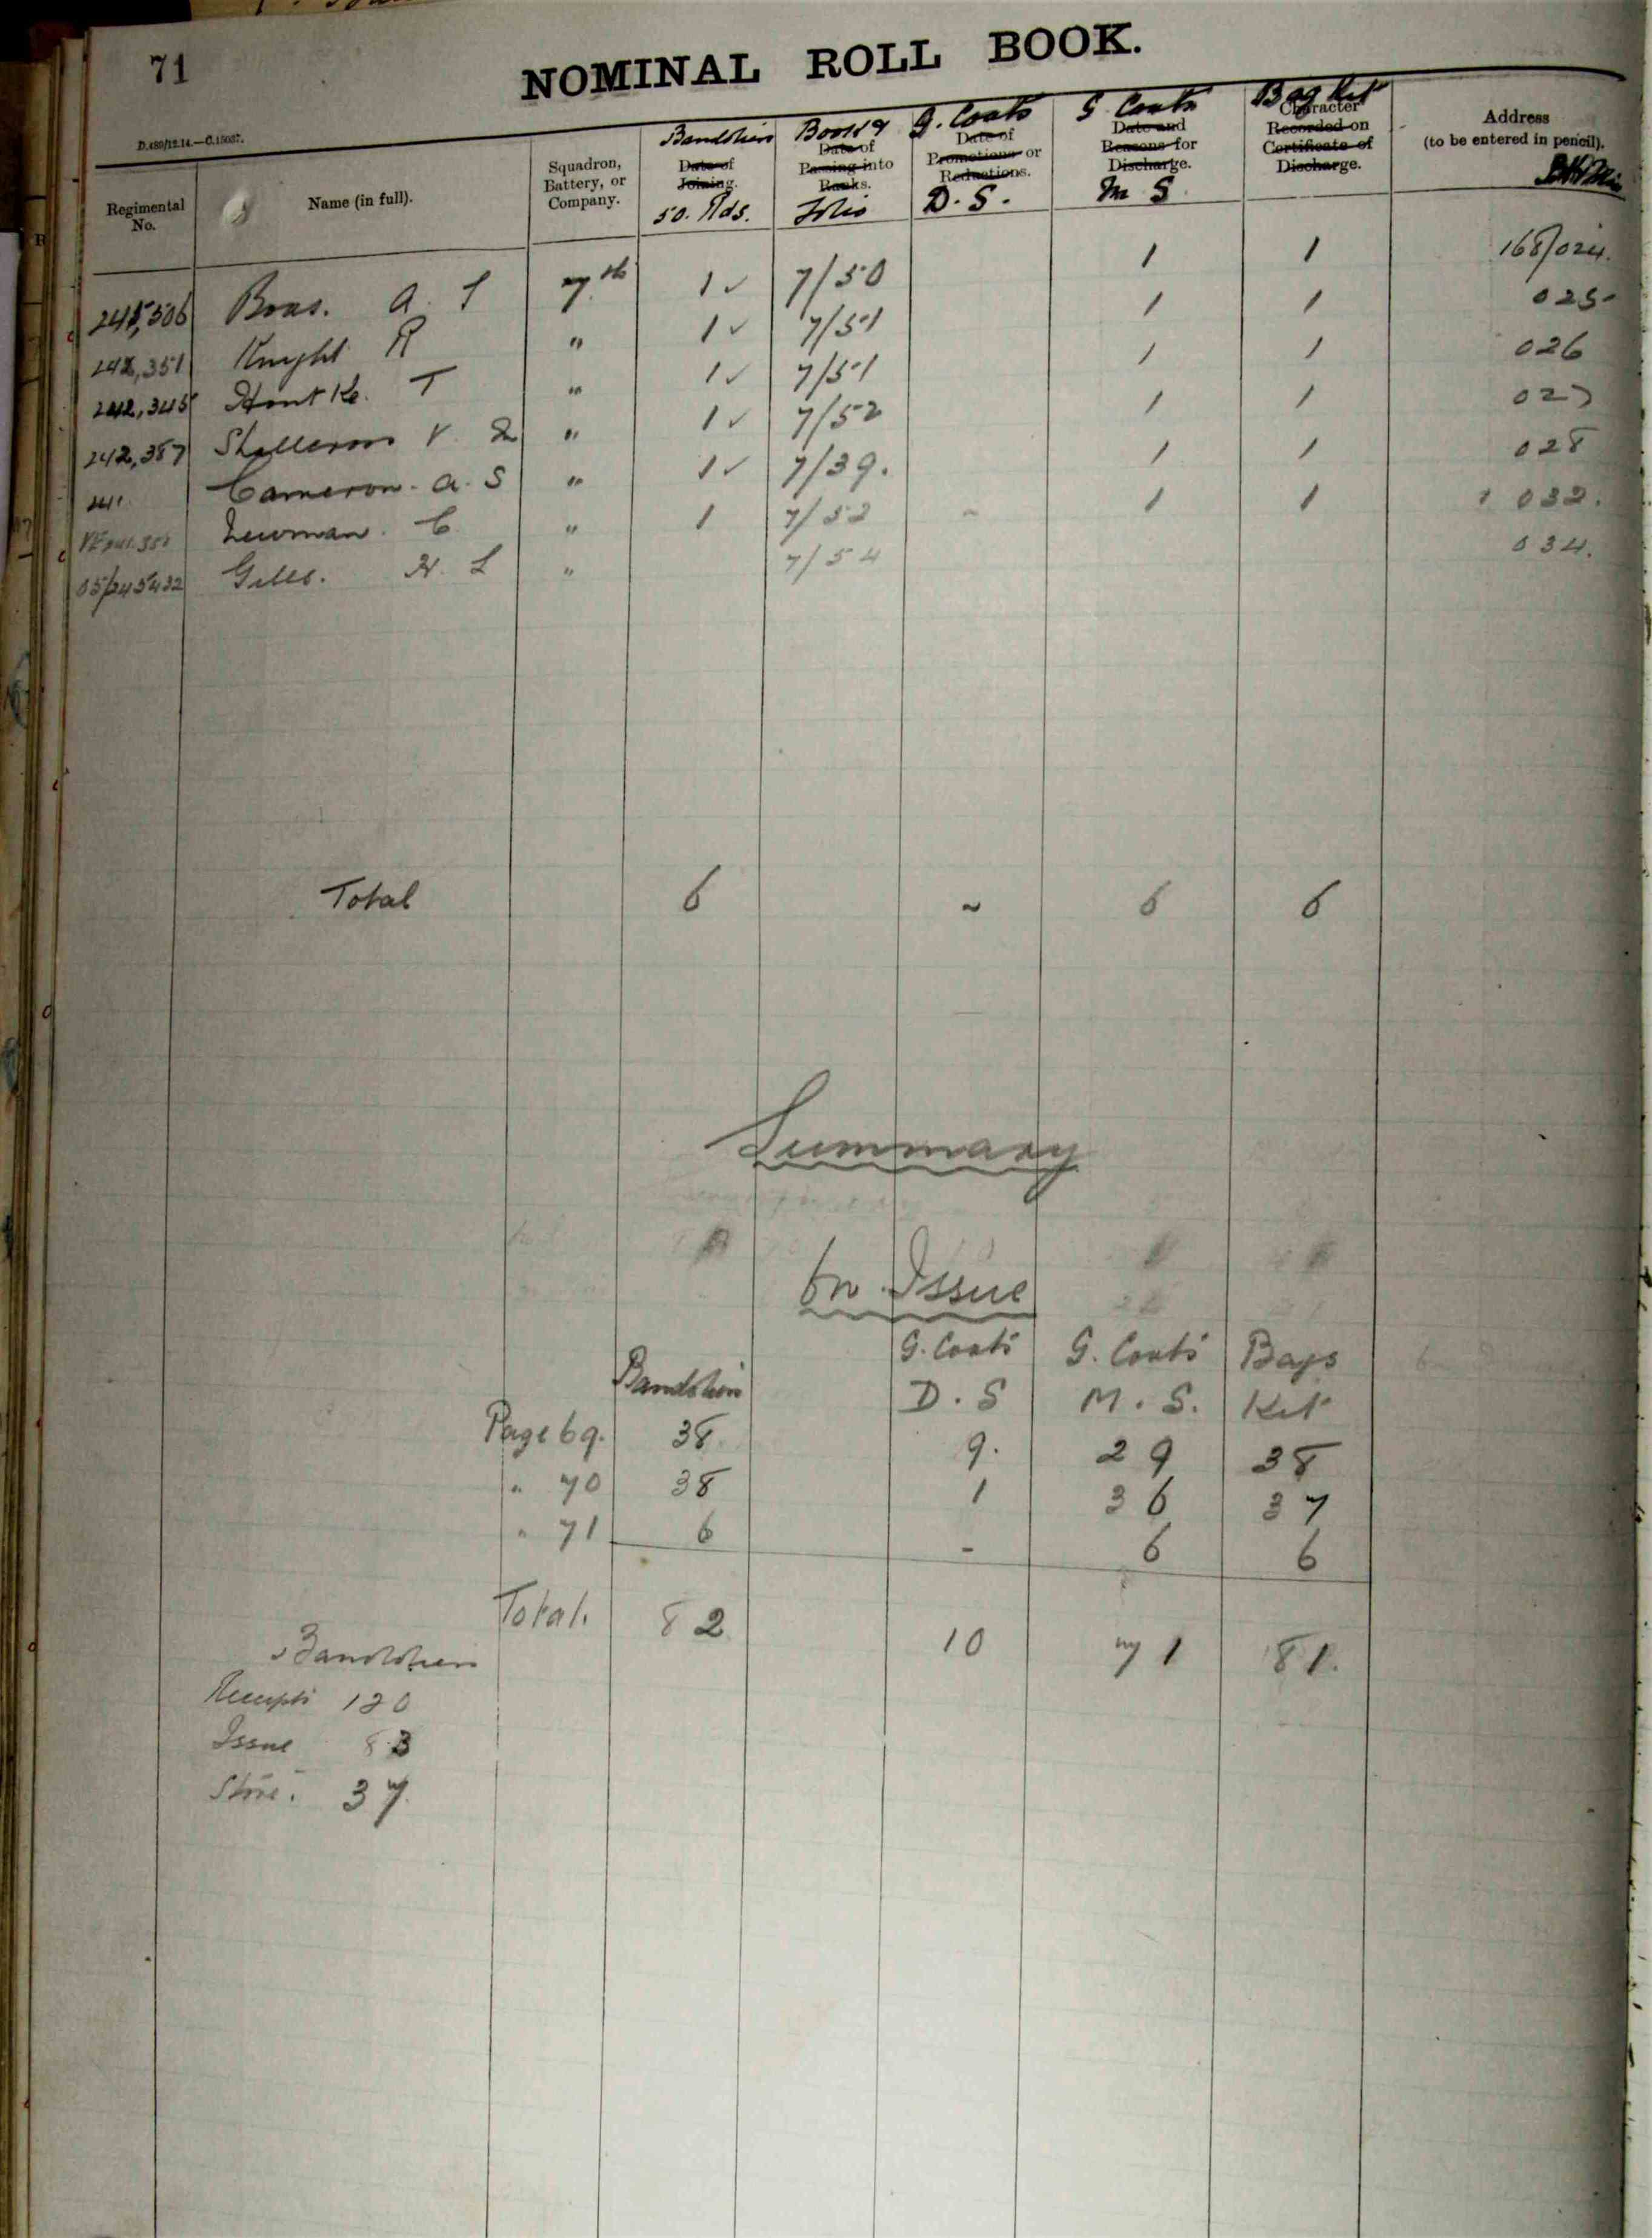 71
NOMINAL ROLL BOOK.
D.489/12.14.—C.15037.
Bandolier Book 9 G. Coats G. Coats Bag Kit
Regimental No. Name (in full). Squadron, Battery, or Company. Date of Joining. Date of Passing into Ranks. Date of Promotions or Reductions. Date and Reasons for Discharge. Character Recorded on Certificate of Discharge. Address (to be entered in pencil).
50. Rds. Folio D. S. M S
Boas. A. 7th 1 ✓ 7/50 1 1 168/024.
242,351 Knight R " 1 ✓ 7/51 1 1 025
242,345 T " 1 ✓ 7/51 1 1 026
242,387 V. " 1 ✓ 7/52 1 1 027
Cameron. A. S " 1 ✓ 7/39. 1 1 028
Newman. C " 1 7/53 - 1 1 032.
05/245432 Giles. H. L " 7/54 034.
Total 6 ~ 6 6
Summary
On Issue
Bandolier G. Coats G. Coats Bags
D. S M. S. Kit
Page 69. 38 9. 29 38
" 70 38 1 36 37
" 71 6 - 6 6
Total. 82 10 71 81.
Bandolier
Receipts 120
Issue 83
Store. 37